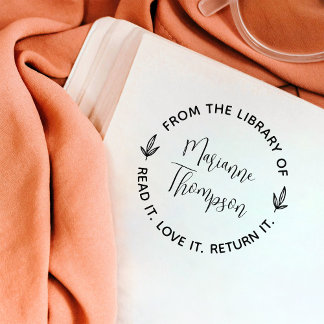 FROM THE LIBRARY OF
Marianne
Thompson
READ IT. LOVE IT. RETURN IT.